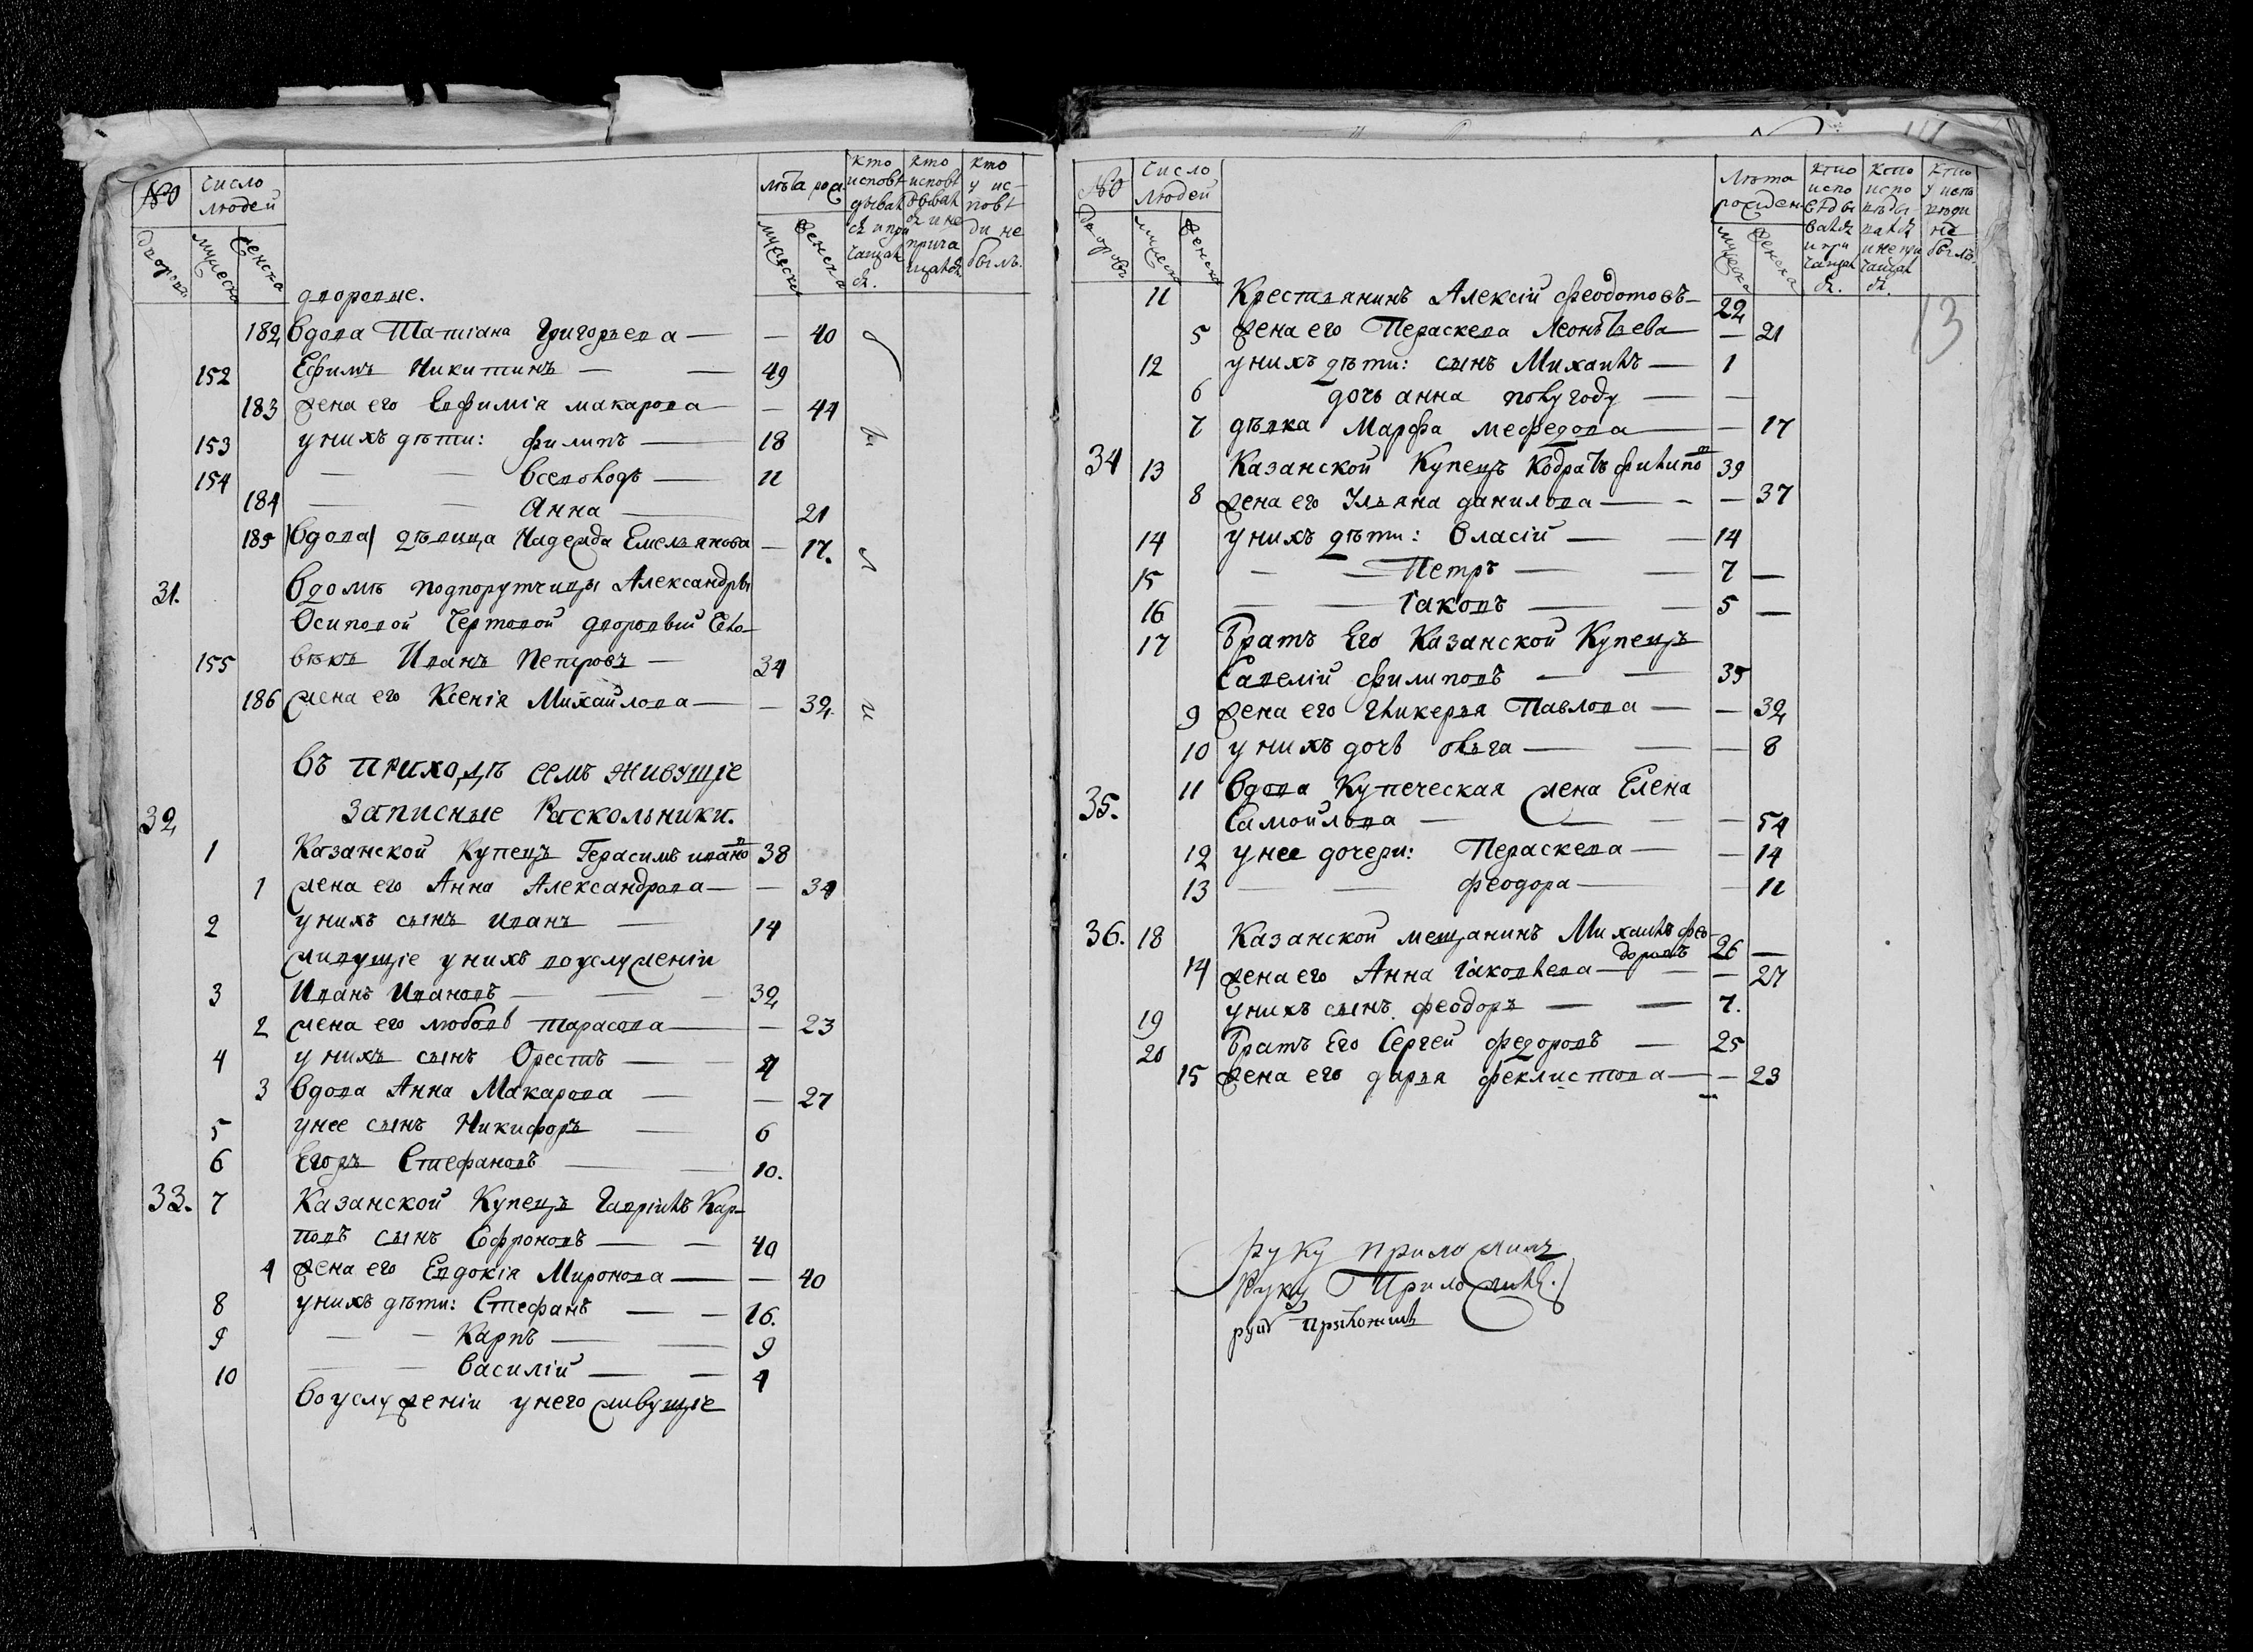 №
число людей
лѣта рож:
кто исповѣдывался и причащался.
кто исповѣдывался и не причащался
кто у исповѣди не былъ.
дворовъ
мужеска
женска
мужеска
женска
дворовые.
182 вдова Татиана Григорьева — — 40
152 Ефимъ Никитинъ — — 49
183 жена его Евфимія макарова — — 44
153 у нихъ дѣти: филипъ — 18
154 — — всеволодъ — 11
184 — — Анна — 21
185 |вдова| дѣвица Надежда Емельянова — 17.
31. Вдомѣ подпорутчицы Александры
Осиповой Чертовой дворовый Чело-
155 вѣкъ Иванъ Петровъ — 34
186 жена его Ксенія Михайлова — — 32
въ приходѣ семъ живущіе
32 записные Раскольники.
1 Казанской Купецъ Герасимъ ивано в 38
1 жена его Анна Александрова — — 34
2 у нихъ сынъ иванъ — 14
живущіе у нихъ во услуженіи
3 Иванъ Ивановъ — — — 32
2 жена его любовь тарасова — — 23
4 у нихъ сынъ Орестъ — 4
3 вдова Анна Макарова — — 27
5 унее сынъ Никифоръ — 6
6 Егоръ Стефановъ — — 10.
33. 7 Казанской Купецъ Гавріилъ Кар-
повъ сынъ Софроновъ — — 40
4 жена его Евдокія Миронова — — 40
8 унихъ дѣти: Стефанъ — — 16.
9 — — Карпъ — — 9
10 — — василій — — 4
во услуженіи унего живущіе
№
число людей
лѣта рожден
кто исповѣдывался и причащался.
кто исповѣдывался и не причащался.
кто у исповѣди не былъ.
дворовъ
мужеска
женска
мужеска
женска
13
11 Крестьянинъ Алексій феодотовъ — 22
5 жена его Параскева Леонтьева — — 21
12 унихъ дѣти: сынъ Михаилъ — 1
6 дочь анна полугоду — —
7 дѣвка Марфа мефедова — — 17
34 13 Казанской Купецъ Кодратъ филипо в 39
8 жена его Ульяна данилова — - — 37
14 унихъ дѣти: власій — — 14
15 — — Петръ — — 7 —
16 — — Іаковъ — — 5 —
17 Братъ Его Казанской Купецъ
Савелій филиповъ — — 35
9 жена его Гликерья Павлова — — 32
10 у нихъ дочь ольга — — — 8
11 вдова Купеческая жена Елена
35. Самойлова — — — — 54
12 унее дочери: Параскева — — 14
13 — — феодора — — 11
36. 18 Казанской мещанинъ Михаилъ фео-
доровъ 26 —
14 жена его Анна Іаковлева — — — 27
19 унихъ сынъ феодоръ — — 7.
20 Братъ Его Сергей федоровъ — 25
15 жена его дарья феклистова — — 23
руку приложилъ
Руку Приложилъ.
руку приложилъ